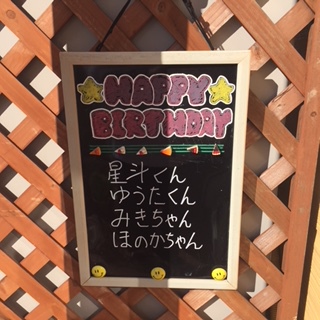 HAPPY
BIRTHDAY
星斗くん
ゆうたくん
みきちゃん
ほのかちゃん